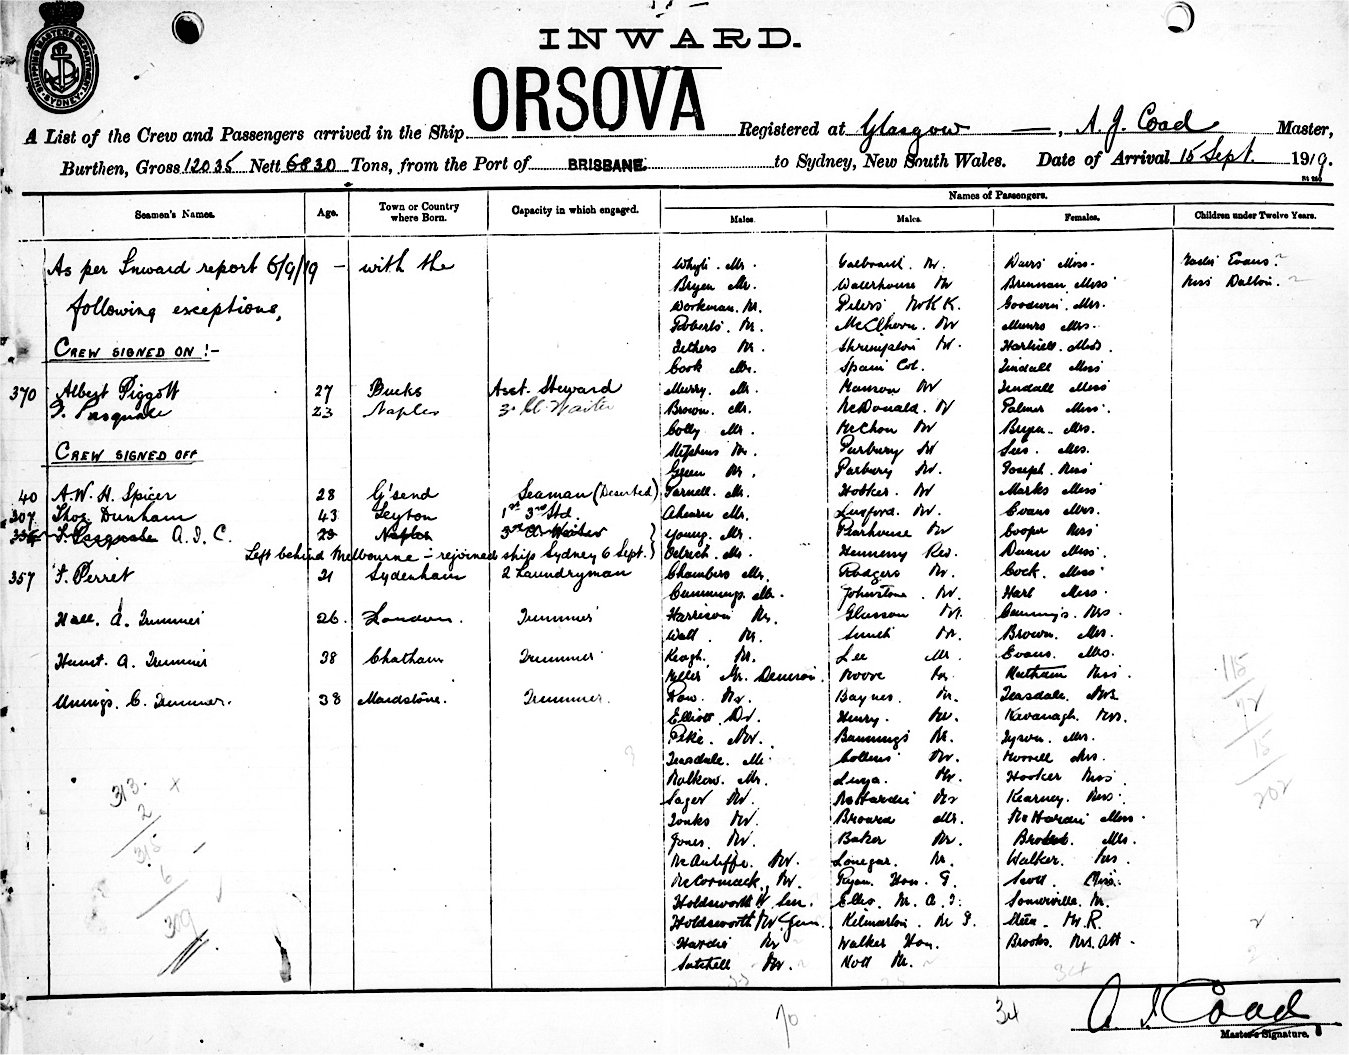 SHIPPING MASTERS DEPARTMENT
SYDNEY
INWARD.
ORSOVA
A List of the Crew and Passengers arrived in the Ship Registered at Glasgow — , A. J. Coad Master,
Burthen, Gross 12035 Nett 6830 Tons, from the Port of BRISBANE. to Sydney, New South Wales. Date of Arrival 15 Sept. 1919.
Names of Passengers.
Seamen's Names. Age. Town or Country where Born. Capacity in which engaged. Males. Males. Females. Children under Twelve Years.
As per Inward report 6/9/19 – with the
following exceptions,
CREW SIGNED ON :-
370 Albert Piggott 27 Bucks Asst. Steward
Pasquale 23 Naples 3rd Cl Waiter
CREW SIGNED OFF
40 A. W. H. Spicer 28 G'send Seaman (Deserted)
207 Thos Dunham 43 Leyton 1st 3rd Std.
Pasquale A. I. C. 23 Naples 3rd Cl Waiter
Left behind Melbourne – rejoined ship Sydney 6 Sept.
357 F. Perret 21 Sydenham 2 Laundryman
Hall. A. Trimmer 26 London. Trimmer
Hunt. A. Trimmer 38 Chatham Trimmer
C. Trimmer. 38 Maidstone. Trimmer.
Whyte. Mr.
Bryen Mr.
Workman. Mr.
Roberts. Mr.
Tethers Mr.
Cook Mr.
Murry. Mr.
Brown. Mr.
Colly Mr.
Stephens Mr.
Green Mr.
Parnell. Mr.
Ahearn Mr.
Young. Mr.
Chambers Mr.
Cummings. Mr.
Harrison Mr.
Wall. Mr.
Keogh. Mr.
Row. Mr.
Elliott Dr.
Pike. Mr.
Teasdale. Mr.
Malkow. Mr.
Sager Mr.
Tonks Mr.
Jones. Mr.
McAuliffe. Mr.
McCormack. Mr.
Holdsworth Mr Sen.
Holdsworth Mr Jun.
Hardie Mr
Satchell Mr.
Waterhouse Mr
Peters Mr K K.
McIlhern. Mr
Shrimpton Mr.
Spain Col.
Manson Mr
McDonald. Mr
McChon Mr
Purbury Mr
Parbury Mr.
Hobker. Mr
Luxford. Mr.
Pearhouse Mr
Hennessy Rev.
Rodgers Mr.
Johnstone. Mr.
Glasson Mr.
Lee Mr.
Moore Mr.
Baynes Mr.
Henry. Mr.
Bannings Mr.
Collins Mr.
McHardie Mr
Broard Mr.
Baker Mr.
Lonegar. Mr.
Ryan. Hon. G.
Walker Hon.
Nott Mr.
Davis Miss.
Brennan. Miss
Goodwin. Mrs.
Munro Mrs.
Hartnell. Miss
Tindall Miss
Tindall Miss
Palmer Miss.
Bryen. Mrs.
Lees. Mrs.
Joseph. Miss
Marks Miss
Evans Mrs.
Cooper Miss
Dunn Miss.
Cock. Miss
Hart Miss.
Cummings. Mrs
Brown. Mrs.
Evans. Mrs.
Teasdale. Mrs
Kavanagh. Mrs.
Tyson. Mrs.
Morrell Mrs.
Hooker Miss
Kearney. Miss.
McHardie Miss.
Walker. Mrs
Scott. Miss.
Somerville. M.
Brooks. Mrs.
Master Evans.
Miss Dalton.
313.
2
315
6
319
115
72
15
202
70
34
A J Coad
Master's Signature.